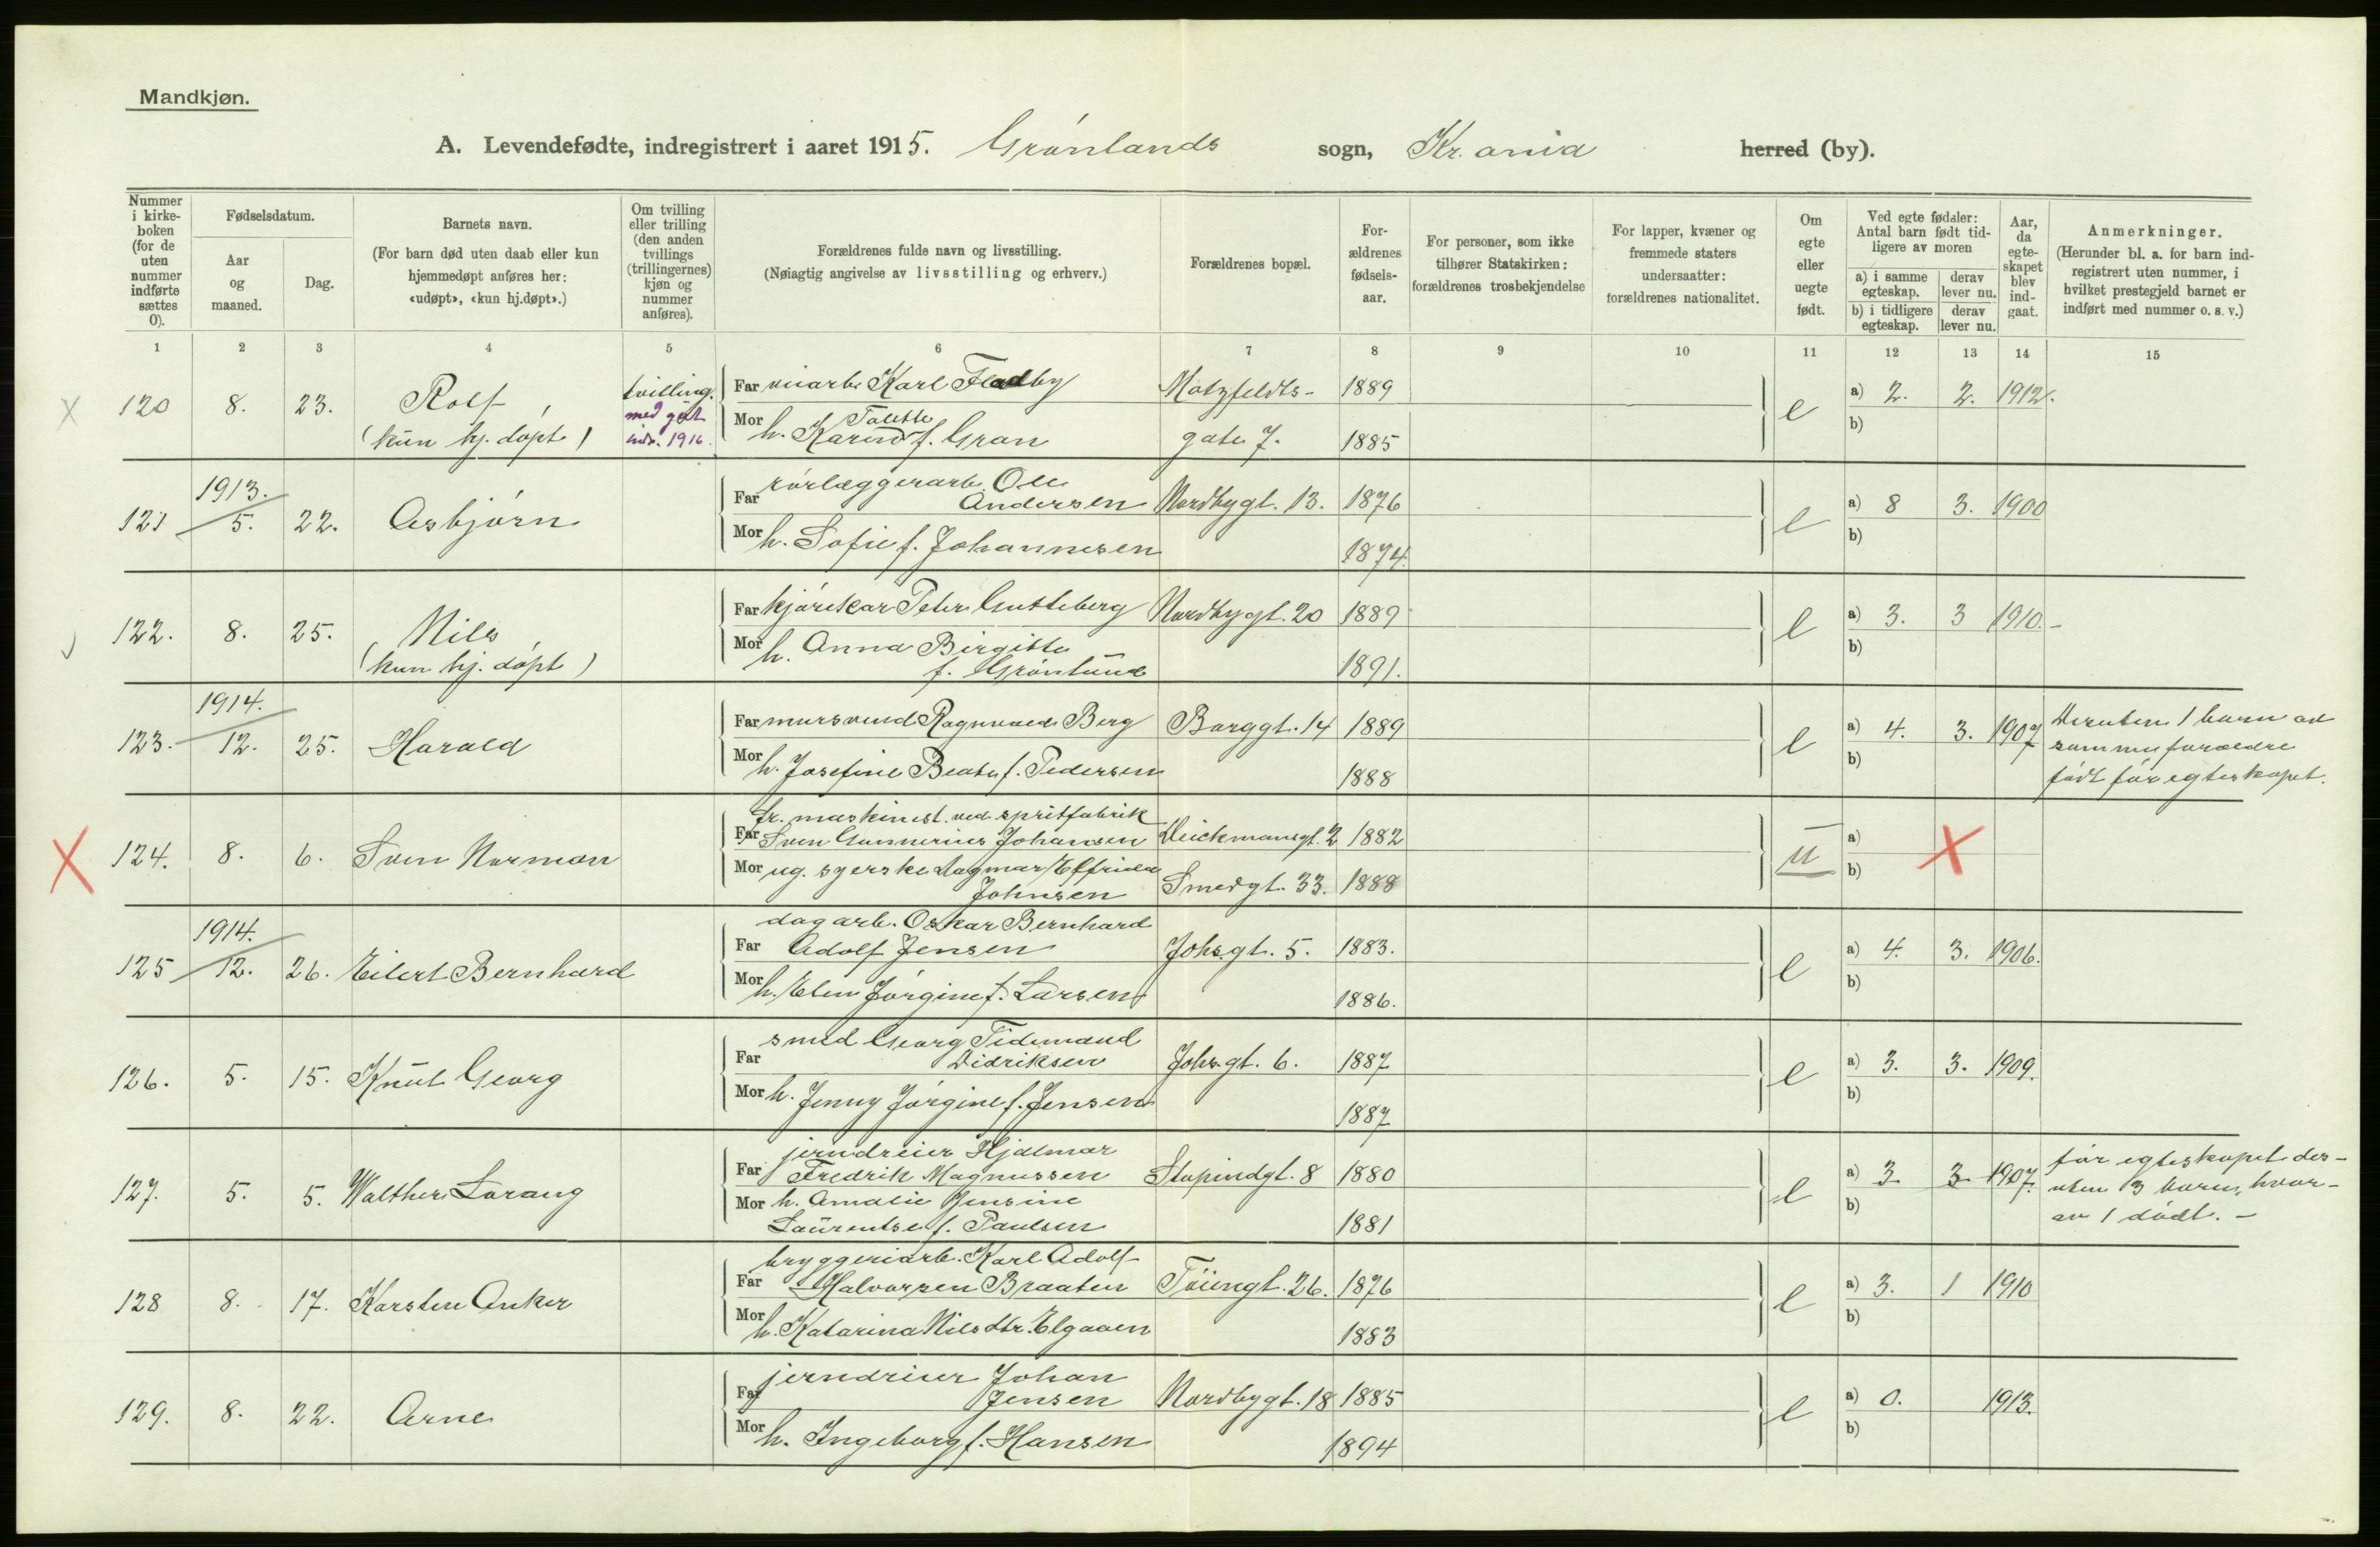 Mandkjøn.
A. Levendefødte, indregistrert i aaret 1915. Grønlands sogn, Kr.ania herred (by).
Nummer i kirkeboken (for de uten nummer indførte sættes 0).
Fødselsdatum.
Aar og maaned.
Dag.
Barnets navn.
(For barn død uten daab eller kun hjemmedøpt anføres her: «udøpt», «kun hj.døpt».)
Om tvilling eller trilling (den anden tvillings (trillingernes) kjøn og nummer anføres).
Forældrenes fulde navn og livsstilling.
(Nøiagtig angivelse av livsstilling og erhverv.)
Forældrenes bopæl.
Forældrenes fødselsaar.
For personer, som ikke tilhører Statskirken: forældrenes trosbekjendelse
For lapper, kvæner og fremmede staters undersaatter: forældrenes nationalitet.
Om egte eller uegte født.
Ved egte fødsler: Antal barn født tidligere av moren
a) i samme egteskap.
derav lever nu.
b) i tidligere egteskap.
derav lever nu.
Aar, da egteskapet blev indgaat.
Anmerkninger.
(Herunder bl. a. for barn indregistrert uten nummer, i hvilket prestegjeld barnet er indført med nummer o. s. v.)
1 2 3 4 5 6 7 8 9 10 11 12 13 14 15
X 120 8. 23. Rolf tvilling. Far Karl Fladby Motzfeldts- 1889 e a) 2. 2. 1912.
(kun hj. døpt) med gut indr. 1916. Mor h. Karen Talette f. Gran gate 7. 1885 b)
1913.
121 5. 22. Asbjørn Far rørlæggerarb. Ole Andersen Nordbygt. 13. 1876 e a) 8 3. 1900
Mor h. Sofie f. Johannesen 1874. b)
122. 8. 25. Nils Far kjørekar Peter Gutteberg Nordbygt. 20 1889 e a) 3. 3 1910.-
(kun hj. døpt) Mor h. Anna Birgitte f. Grønlund 1891. b)
1914.
123. 12. 25. Harald Far mursvend Ragnvald Berg Borggt. 14 1889 e a) 4. 3. 1907 Desuten 1 barn av
Mor h. Josefine Beate f. Pedersen 1888 b) samme forældre
født før egteskapet.
X 124. 8. 6. Sven Norman fr. maskinist. ved spritfabrik
Far Sven Gunnerius Johansen Deichmansgt. 2 1882 u a) X
Mor ug. syerske Dagmar Elfrida Johnsen Smedgt. 33. 1888 b)
1914.
125 12. 26. Eilert Bernhard dagarb. Oskar Bernhard
Far Adolf Jensen Johs.gt. 5. 1883. e a) 4. 3. 1906.
Mor h. Elen Jørgine f. Larsen 1886. b)
126. 5. 15. Knut Georg smed Georg Tidemand
Far Didriksen Johs.gt. 6. 1887 e a) 3. 3. 1909.
Mor h. Jenny Jørgine f. Jensen 1887 b)
127. 5. 5. Walther Lorang jerndreier Hjalmar
Far Fredrik Magnussen Stupindgt. 8 1880 e a) 3. 3. 1907. før egteskapet des-
Mor h. Amalie Jensine uten 3 barn, hvor-
Laurentse f. Paulsen 1881 b) av 1 dødt. -
128 8. 17. Karsten Anker bryggeriarb. Karl Adolf
Far Halvorsen Braaten Tøiengt. 26. 1876 e a) 3. 1 1910
Mor h. Katarina Nilsdtr. Elgaaen 1883 b)
129. 8. 22. Arne jerndreier Johan
Far Jensen Nordbygt. 18 1885 e a) 0. 1913.
Mor h. Ingeborg f. Hansen 1894 b)